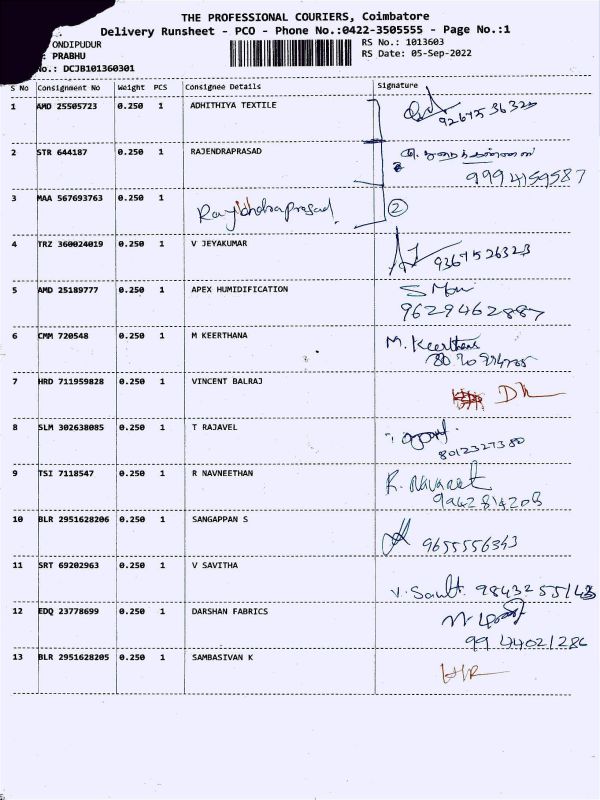 THE PROFESSIONAL COURIERS, Coimbatore
Delivery Runsheet - PCO - Phone No.:0422-3505555 - Page No.:1
ONDIPUDUR RS No.: 1013603
: PRABHU RS Date: 05-Sep-2022
No.: DCJB101360301
S No Consignment No Weight PCS Consignee Details Signature
1 AMD 25505723 0.250 1 ADHITHIYA TEXTILE
2 STR 644187 0.250 1 RAJENDRAPRASAD
9994159587
3 MAA 567693763 0.250 1 Rajendraprasad 2
4 TRZ 360024019 0.250 1 V JEYAKUMAR
9367526323
5 AMD 25189777 0.250 1 APEX HUMIDIFICATION
9629462887
6 CMM 720548 0.250 1 M KEERTHANA M. Keerthana
7 HRD 711959828 0.250 1 VINCENT BALRAJ
8 SLM 302638085 0.250 1 T RAJAVEL
8012327380
9 TSI 7118547 0.250 1 R NAVNEETHAN R. Navaneet
9942814208
10 BLR 2951628206 0.250 1 SANGAPPAN S
9655556343
11 SRT 69202963 0.250 1 V SAVITHA
9843255143
12 EDQ 23778699 0.250 1 DARSHAN FABRICS
9944021286
13 BLR 2951628205 0.250 1 SAMBASIVAN K